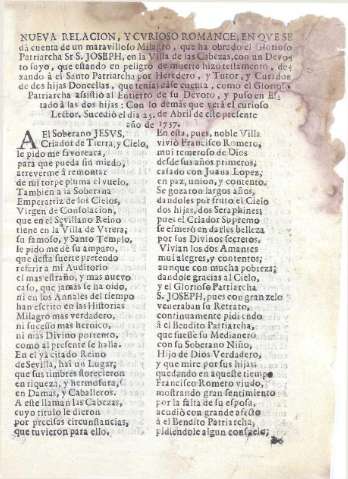 NUEVA RELACION, Y CURIOSO ROMANCE, EN QUE SE
da cuenta de un maravilloso Milagro, que ha obrado el Glorioso
Patriarcha Sr S. JOSEPH, en la Villa de las Cabezas, con un Devoto
suyo, que estando en peligro de muerte hizo testamento, dexando
à el Santo Patriarcha por Heredero, y Tutor, y Curador
de dos hijas Doncellas, que tenia: dase cuenta, como el Glorioso
Patriarcha assistiò al Entierro de su Devoto, y puso en Estado
à las dos hijas: Con lo demàs que verà el curioso
Lector. Sucediò el dia 25. de Abril de este presente
año de 1757.
AL Soberano JESVS,
Criador de Tierra, y Cielo,
le pido me favorezca,
para que pueda sin miedo,
atreverme à remontar
de mi torpe pluma el vuelo,
Tambien a la Soberana
Emperatriz de los Cielos,
Virgen de Consolacion,
que en el Sevillano Reino
tiene en la Villa de Vtrera;
su famoso, y Santo Templo,
le pido me dè su amparo,
que desta suerte pretendo
referir a mi Auditorio
el mas estraño, y mas nuevo
caso, que jamàs se ha oido,
ni en los Annales del tiempo
han escrito en las Historias
Milagro mas verdadero,
ni sucesso mas heroico,
ni mas Divino portento,
como al presente se halla.
En el yà citado Reino
de Sevilla, hai un Lugar;
que sus timbres florecieron
en riqueza, y hermosura,
en Damas, y Caballeros.
A este llaman las Cabezas,
cuyo titulo le dieron
por precisas circunstancias,
que tuvieron para ello,
En esta, pues, noble Villa
viviò Francisco Romero,
mui temeroso de Dios
desde sus años primeros,
casado con Juana Lopez,
en paz, union, y contento.
Se gozaron largos años,
dandoles por fruto el Cielo
dos hijas, dos Seraphines;
pues el Criador Supremo
se esmerò en darles belleza
por sus Divinos secretos.
Vivian los dos Amantes
mui alegres, y contentos;
aunque con mucha pobreza;
dandole gracias al Cielo,
y el Glorioso Patriarcha
S. JOSEPH, pues con gran zelo
veneraban su Retrato,
continuamente pidiendo
à el Bendito Patriarcha,
que fuesse su Medianero
con su Soberano Niño,
Hijo de Dios Verdadero,
y que mire por sus hijas
quedando en aqueste tiempo
Francisco Romero viudo,
mostrando gran sentimiento
por la falta de su esposa,
acudiò con grande afecto
à el Bendito Patriarcha,
pidiendole algun consuelo;